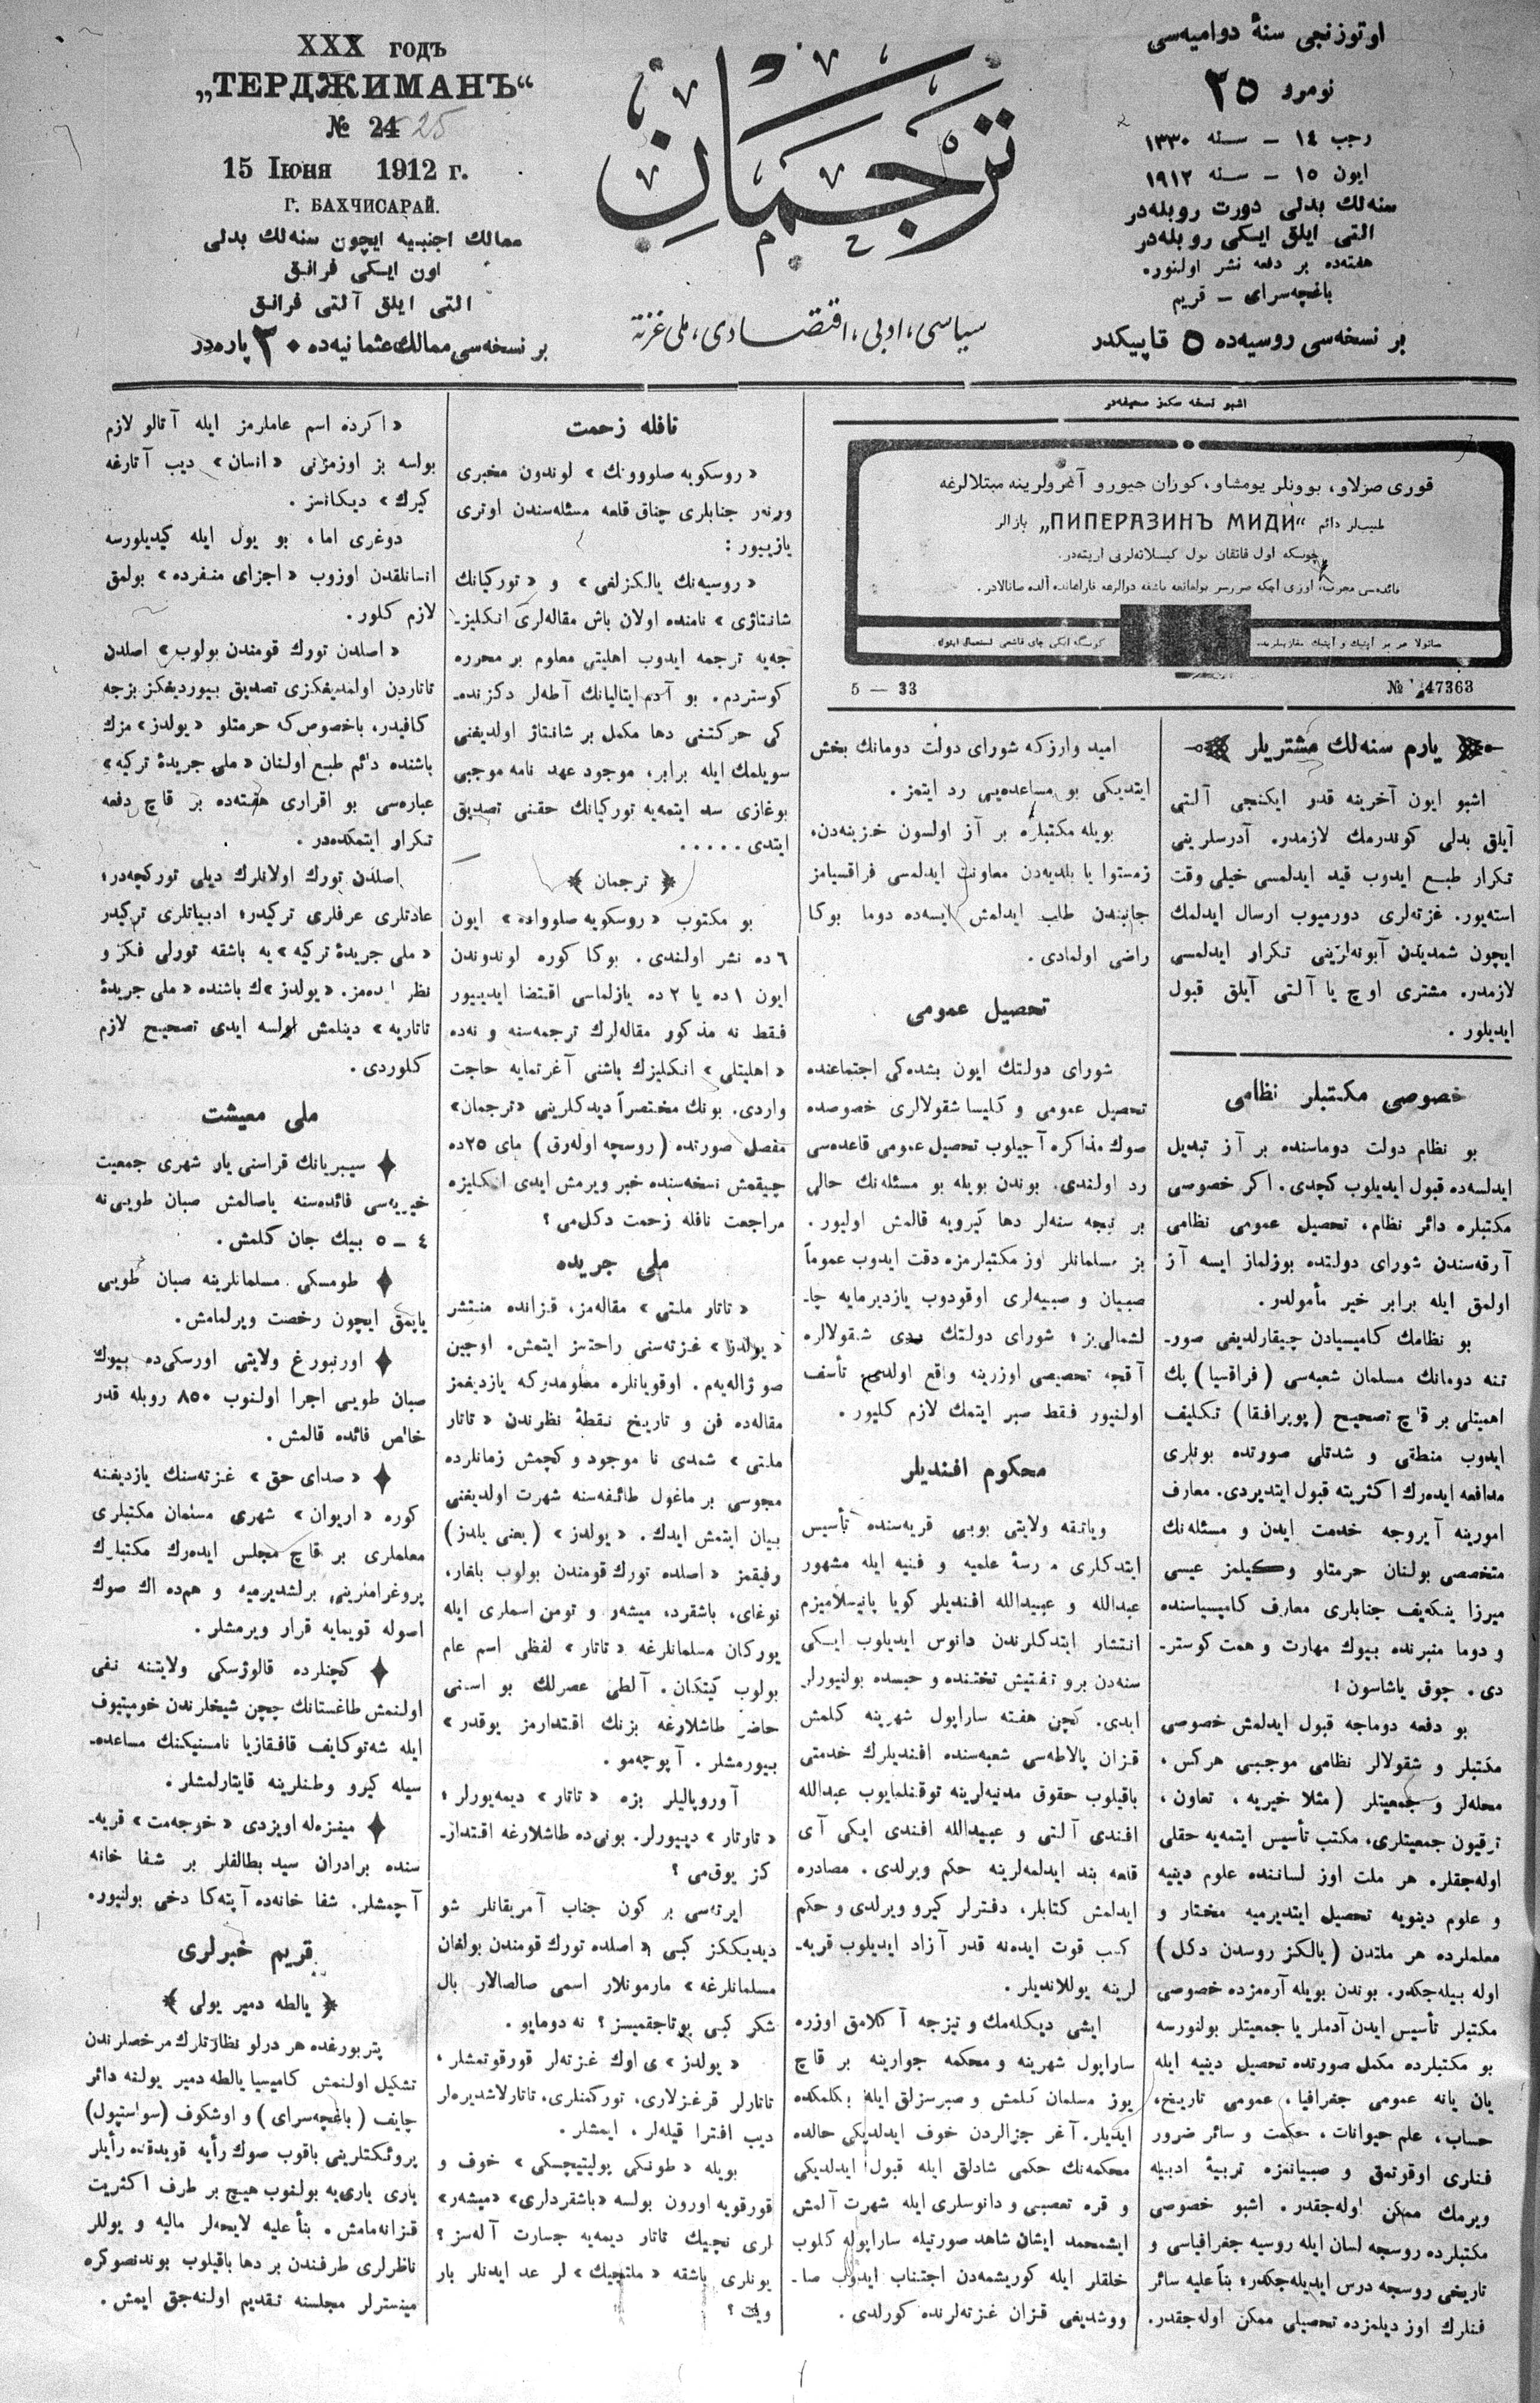 اوتوزنجی سنهٔ دوامیه‌سی
نومرو ۲۵
رجب ۱٤ – سنه ۱۳۳۰
ایون ۱۵ – سنه ۱۹۱۲
سنه‌لك بدلی دورت روبله‌در
التی ایلق ایكی روبله‌در
هفته‌ده بر دفعه نشر اولنور
باغچه‌سرای – قریم
بر نسخه‌سی روسیه‌ده ۵ قاپیكدر
ترجمان
سیاسی، ادبی، اقتصادی، ملی غزته
XXX годъ
„ТЕРДЖИМАНЪ“
№ 24 25
15 Іюня 1912 г.
Г. БАХЧИСАРАЙ.
ممالك اجنبیه ایچون سنه‌لك بدلی
اون ایكی فرانق
التی ایلق آلتی فرانق
بر نسخه‌سی ممالك عثمانیه‌ده ۳۰ پاره‌در
اشبو نسخه سكز صحیفه‌در
قوری صزلاو، بوونلر یومشاو، كوزان جیورو آغرولرینه مبتلالرغه
طبیبلر دائم „ПИПЕРАЗИНЪ МИДИ“ یازالر
چونكه اول قاتقان بول كیسلاتەلرنی اریته‌در.
5 — 33
№ 47363
یارم سنه‌لك مشتریلر
اشبو ایون آخرینه قدر ایكنجی آلتی
آیلق بدلی كوندرمك لازمدر. آدرسلرینی
تكرار طبع ایدوب قید ایدلمسی خیلی وقت
استه‌یور. غزته‌لری دورمیوب ارسال ایدلمك
ایچون شمدیدن آبونه‌لرینی تكرار ایدلمسی
لازمدر. مشتری اوچ یا آلتی آیلق قبول
ایدیلور.
خصوصی مكتبلر نظامی
بو نظام دولت دوماسنده بر آز تبدیل
ایدلسه‌ده قبول ایدیلوب كچدی. اكر خصوصی
مكتبلره دائر نظام، تحصیل عمومی نظامی
آرقه‌سندن شورای دولتده بوزلماز ایسه آز
اولمق ایله برابر خیر مأمولدر.
بو نظامك كامیسیادن چیقارلدیغی صور-
تنه دومانك مسلمان شعبه‌سی (فراقسیا) پك
اهمیتلی بر قاچ تصحیح (پوپرافقا) تكلیف
ایدوب منطقی و شدتلی صورتده بونلری
مدافعه ایده‌رك اكثریته قبول ایتدیردی. معارف
امورینه آیروجه خدمت ایدن و مسئله‌نك
متخصصی بولنان حرمتلو وكیلمز عیسی
میرزا ینكه‌یف جنابلری معارف كامیسیاسنده
و دوما منبرنده بیوك مهارت و همت كوستر-
دی. چوق یاشاسون!
بو دفعه دوماجه قبول ایدلمش خصوصی
مكتبلر و شقولالر نظامی موجبی هركس،
محله‌لر و جمعیتلر (مثلا خیریه، تعاون،
ترقیون جمعیتلری، مكتب تأسیس ایتمه‌یه حقلی
اوله‌جقلر. هر ملت اوز لساننده علوم دینیه
و علوم دنیویه تحصیل ایتدیرمیه مختار و
معلملرده هر ملتدن (یالكز روسدن دكل)
اوله بیله‌جكدر. بوندن بویله آره‌مزده خصوصی
مكتبلر تأسیس ایدن آدملر یا جمعیتلر بولنورسه
بو مكتبلرده مكمل صورتده تحصیل دینیه ایله
یان یانه عمومی جغرافیا، عمومی تاریخ،
حساب، علم حیوانات، حكمت و سائر ضرور
فنلری اوقوتمق و صبیانمزه تربیهٔ ادبیه
ویرمك ممكن اوله‌جقدر. اشبو خصوصی
مكتبلرده روسجه لسان ایله روسیه جغرافیاسی و
تاریخی روسجه درس ایدیله‌جكدر؛ بنأ علیه سائر
فنلرك اوز دیلمزده تحصیلی ممكن اوله‌جقدر.
امید وارزكه شورای دولت دومانك بخش
ایتدیكی بو مساعده‌یی رد ایتمز.
بویله مكتبلره بر آز اولسون خزینه‌دن،
زمستوا یا بلدیه‌دن معاونت ایدلمسی فراقسیامز
جانبندن طلب ایدلمش ایسه‌ده دوما بوكا
راضی اولمادی.
تحصیل عمومی
شورای دولتك ایون بشده‌كی اجتماعنده
تحصیل عمومی و كلیسا شقولالری خصوصده
صوك مذاكره آچیلوب تحصیل عمومی قاعده‌سی
رد اولندی. بوندن بویله بو مسئله‌نك حالی
بر نیچه سنه‌لر دها كیرویه قالمش اولیور.
بز مسلمانلر اوز مكتبلرمزه دقت ایدوب عموماً
صبیان و صبیه‌لری اوقودوب یازدیرمایه چا-
لشمالی‌یز؛ شورای دولتك ردی شقولالره
آقچه تخصیصی اوزرینه واقع اولدی. تأسف
اولنیور فقط صبر ایتمك لازم كلیور.
محكوم افندیلر
ویاتقه ولایتی بوبی قریه‌سنده تأسیس
ایتدكلری مدرسهٔ علمیه و فنیه ایله مشهور
عبدالله و عبیدالله افندیلر كویا پانیسلامیزم
انتشار ایتدكلرندن دانوس ایدیلوب ایكی
سنه‌دن برو تفتیش تختنده و حبسده بولنیورلر
ایدی. كچن هفته ساراپول شهرینه كلمش
قزان پالاطه‌سی شعبه‌سنده افندیلرك خدمتی
باقیلوب حقوق مدنیه‌لرینه توقنلمایوب عبدالله
افندی آلتی و عبیدالله افندی ایكی آی
قلعه بند ایدلمه‌لرینه حكم ویرلدی. مصادره
ایدلمش كتابلر، دفترلر كیرو ویرلدی و حكم
كسب قوت ایده‌نه قدر آزاد ایدیلوب قریه-
لرینه یوللاندیلر.
ایشی دیكله‌مك و تیزجه آكلامق اوزره
ساراپول شهرینه و محكمه جوارینه بر قاچ
یوز مسلمان كلمش و صبرسزلق ایله بكلمكده
ایدیلر. آغر جزالردن خوف ایدلدیكی حالده
محكمه‌نك حكمی شادلق ایله قبول ایدلدیكی
و قره تعصبی و دانوسلری ایله شهرت آلمش
ایشمحمد ایشان شاهد صورتیله ساراپوله كلوب
خلقلر ایله كوریشمه‌دن اجتناب ایدوب صا-
ووشدیغی قزان غزته‌لرنده كورلدی.
نافله زحمت
«روسكویه صلووونك» لوندون مخبری
ورنەر جنابلری چناق قلعه مسئله‌سندن اوتری
یازییور:
«روسیه‌نك یالكزلغی» و «توركیانك
شانتاژی» نامنده اولان باش مقاله‌لری انكلیز-
جه‌یه ترجمه ایدوب اهلیتی معلوم بر محرره
كوستردم. بو آدم ایتالیانك آطه‌لر دكزنده-
كی حركتنی دها مكمل بر شانتاژ اولدیغنی
سویلمك ایله برابر، موجود عهد نامه موجبی
بوغازی سد ایتمه‌یه توركیانك حقنی تصدیق
ایتدی.....
﴿ ترجمان ﴾
بو مكتوب «روسكویه صلوواده» ایون
٦ ده نشر اولندی. بوكا كوره لوندوندن
ایون ۱ ده یا ۲ ده یازلماسی اقتضا ایدییور
فقط نه مذكور مقاله‌لرك ترجمه‌سنه و نه‌ده
«اهلیتلی» انكلیزك باشنی آغرتمایه حاجت
واردی. بونك مختصراً دیدكلرینی «ترجمان»
مفصل صورتده (روسچه اوله‌رق) مای ۲۵ ده
چیقمش نسخه‌سنده خبر ویرمش ایدی انكلیزه
مراجعت نافله زحمت دكل‌می؟
ملی جریده
«تاتار ملتی» مقاله‌مز، قزانده منتشر
«یولدز» غزته‌سنی راحتسز ایتمش. اوجین
صو ژاله‌یه‌م. اوقویانلره معلومدركه یازدیغمز
مقاله‌ده فن و تاریخ نقطهٔ نظرندن «تاتار
ملتی» شمدی نا موجود و كچمش زمانلرده
مجوسی بر ماغول طائفه‌سنه شهرت اولدیغنی
بیان ایتمش ایدك. «یولدز» (یعنی یلدز)
رفیقمز «اصلده تورك قومندن بولوب بلغار،
نوغای، باشقرد، میشەر و تومن اسملری ایله
یوركان مسلمانلرغه «تاتار» لفظی اسم عام
بولوب كیتكان. آلطی عصرلك بو اسمنی
حاضر طاشلارغه بزنك اقتدارمز یوقدر»
بیورمشلر. آ پوچه‌مو.
آوروپالیلر بزه «تاتار» دیمه‌یورلر؛
«تارتار» دییورلر. بونی‌ده طاشلارغه اقتدار-
كز یوق‌می؟
ایرته‌سی بر كون جناب آمریقانلر شو
دیدیككز كبی «اصلده تورك قومندن بولغان
مسلمانلرغه» مارمونلار اسمی صالصالار بال
شكر كبی یوتاجقمیسز؟ نه دومایو.
«یولدز» ی اوك غزته‌لر قورقوتمشلر،
تاتارلر قرغزلاری، توركمنلری، تاتارلاشدیره‌لر
دیب افترا قیله‌لر، ایمشلر.
بویله «طونكی پولیتیچسكی» خوف و
قورقویه اورون بولسه «باشقرداری» «میشەر»
لری نچیك تاتار دیمه‌یه جسارت آله‌سز؟
بونلری باشقه «ملتچیك» لر عد ایدنلر بار
«اكرده اسم عاملرمز ایله آتالو لازم
بولسه بز اوزمزنی «انسان» دیب آتارغه
كیرك» دیكانسز.
دوغری اما، بو یول ایله كیدیلورسه
انسانلقدن اوزوب «اجزای منفرده» بولمق
لازم كلور.
«اصلدن تورك قومندن بولوب» اصلدن
تاتاردن اولمدیغكزی تصدیق بیوردیغكز بزجه
كافیدر، باخصوص كه حرمتلو «یولدز» مزك
باشنده دائم طبع اولنان «ملی جریدهٔ تركیه»
عباره‌سی بو اقراری هفته‌ده بر قاچ دفعه
تكرار ایتمكده‌در.
اصلدن تورك اولانلرك دیلی توركچه‌در؛
عادتلری عرفلری تركیدر؛ ادبیاتلری تركیدر
«ملی جریدهٔ تركیه» یه باشقه تورلی فكر و
نظر ایده‌مز. «یولدز»ك باشنده «ملی جریدهٔ
تاتاریه» دینلمش اولسه ایدی تصحیح لازم
كلوردی.
ملی معیشت
سیبریانك قراسنی یار شهری جمعیت
خیریه‌سی فائده‌سنه یاصالمش صبان طویی‌نه
٤ – ۵ بیك جان كلمش.
طومسكی مسلمانلرینه صبان طویی
یاپمق ایچون رخصت ویرلمامش.
اورنبورغ ولایتی اورسكی‌ده بیوك
صبان طویی اجرا اولنوب ۸۵۰ روبله قدر
خالص فائده قالمش.
«صدای حق» غزته‌سنك یازدیغنه
كوره «اریوان» شهری مسلمان مكتبلری
معلملری بر قاچ مجلس ایده‌رك مكتبلرك
پروغراملرینی برلشدیرمیه و هم‌ده اك صوك
اصوله قویمایه قرار ویرمشلر.
كچنلرده قالوژسكی ولایتنه نفی
اولنمش طاغستانك چچن شیخلرندن خوپتیوف
ایله شەتوكایف قافقازیا نامسنیكنك مساعده-
سیله كیرو وطنلرینه قایتارلمشلر.
مینزه‌له اویزدی «خوجه‌مت» قریه-
سنده برادران سید بطالفلر بر شفا خانه
آچمشلر. شفا خانه‌ده آپته‌كا دخی بولنیور.
قریم خبرلری
﴿ یالطه دمیر یولی ﴾
پتربورغده هر درلو نظارتلرك مرخصلرندن
تشكیل اولنمش كامیسیا یالطه دمیر یولنه دائر
چاپف (باغچه‌سرای) و اوشكوف (سواستپول)
پروئكتلرینی باقوب صوك رأیه قویدقده رأیلر
یاری یاری‌یه بولنوب هیچ بر طرف اكثریت
قزانه‌مامش. بنأ علیه لایحه‌لر مالیه و یوللر
ناظرلری طرفندن بر دها باقیلوب بوندنصوكره
مینسترلر مجلسنه تقدیم اولنه‌جق ایمش.